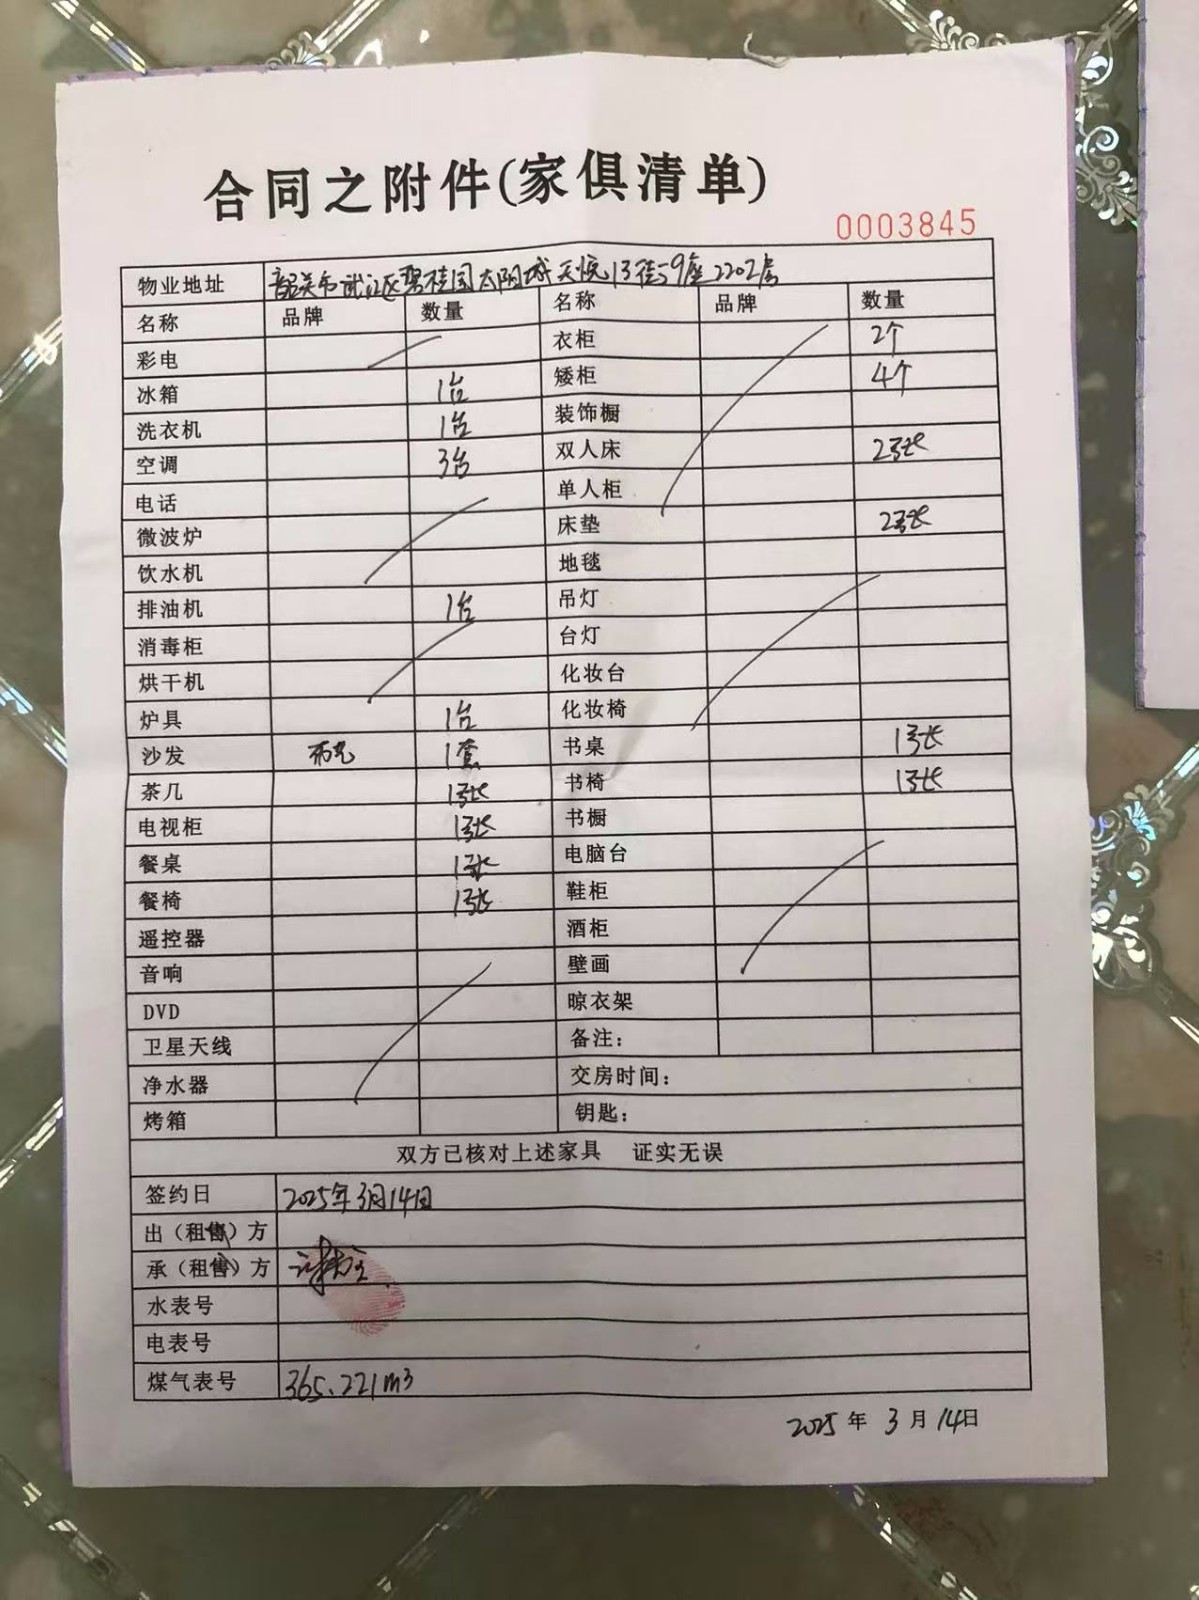 合同之附件(家俱清单)
0003845
物业地址 韶关市武江区碧桂园太阳城天悦13街9座2202房
名称 品牌 数量 名称 品牌 数量
彩电 衣柜 2个
冰箱 1台 矮柜 4个
洗衣机 1台 装饰橱
空调 3台 双人床 2张
电话 单人柜
微波炉 床垫 2张
饮水机 地毯
排油机 1台 吊灯
消毒柜 台灯
烘干机 化妆台
炉具 1台 化妆椅
沙发 1套 书桌 1张
茶几 1张 书椅 1张
电视柜 1张 书橱
餐桌 1张 电脑台
餐椅 1张 鞋柜
遥控器 酒柜
音响 壁画
DVD 晾衣架
卫星天线 备注：
净水器 交房时间：
烤箱 钥匙：
双方已核对上述家具 证实无误
签约日 2025年3月14日
出（租售）方
承（租售）方
水表号
电表号
煤气表号 365.221m³
2025年3月14日